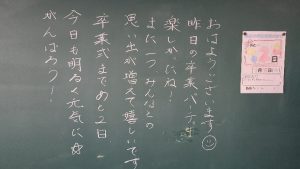 おはようございます
昨日の卒業パーティー
楽しかったね!
また一つみんなとの
思い出が増えて嬉しいです
卒業式まであと2日
今日も明るく元気に☆
がんばろう!